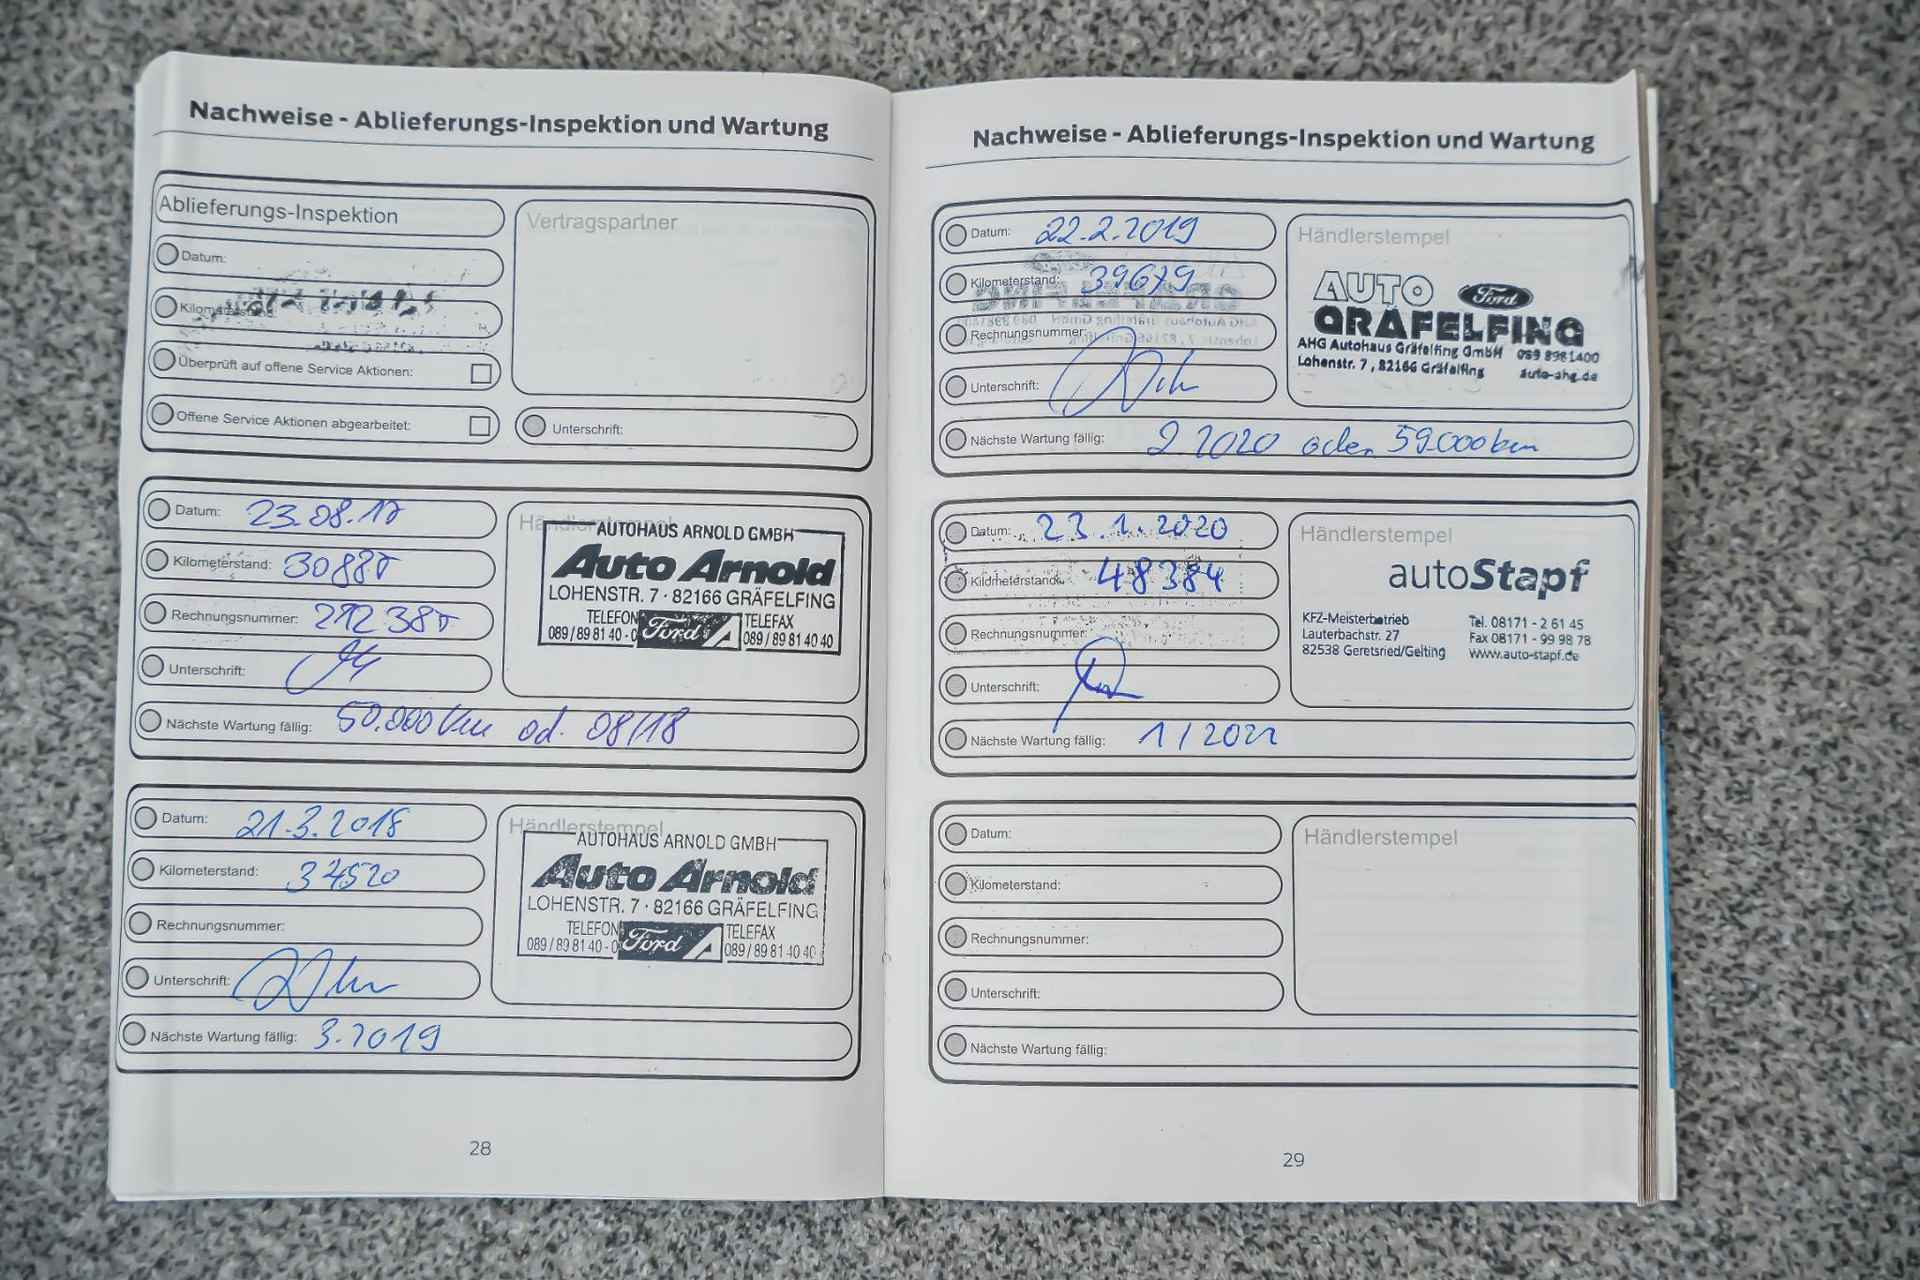 Nachweise - Ablieferungs-Inspektion und Wartung
Ablieferungs-Inspektion
Datum:
Kilometerstand:
Überprüft auf offene Service Aktionen:
Offene Service Aktionen abgearbeitet:
Vertragspartner
Unterschrift:
Datum: 23.08.17
Kilometerstand:
Rechnungsnummer:
Unterschrift:
Nächste Wartung fällig: 50.000 km od. 08/18
Händlerstempel
AUTOHAUS ARNOLD GMBH
Auto Arnold
LOHENSTR. 7 · 82166 GRÄFELFING
TELEFON Ford TELEFAX
089 / 89 81 40 - 0 089 / 89 81 40 40
Datum: 21.3.2018
Kilometerstand: 37520
Rechnungsnummer:
Unterschrift:
Nächste Wartung fällig: 3.2019
Händlerstempel
AUTOHAUS ARNOLD GMBH
Auto Arnold
LOHENSTR. 7 · 82166 GRÄFELFING
TELEFON Ford TELEFAX
089 / 89 81 40 - 0 089 / 89 81 40 40
28
Nachweise - Ablieferungs-Inspektion und Wartung
Datum: 22.2.2019
Kilometerstand: 39679
Rechnungsnummer:
Unterschrift:
Nächste Wartung fällig: 2 2020 oder 59.000 km
Händlerstempel
AUTO Ford
GRÄFELFING
AHG Autohaus Gräfelfing GmbH 089 8981400
Lohenstr. 7 , 82166 Gräfelfing auto-ahg.de
Datum: 23.1.2020
Kilometerstand: 48384
Rechnungsnummer:
Unterschrift:
Nächste Wartung fällig: 1 / 2022
Händlerstempel
autoStapf
KFZ-Meisterbetrieb Tel. 08171 - 2 61 45
Lauterbachstr. 27 Fax 08171 - 99 98 78
82538 Geretsried/Gelting www.auto-stapf.de
Datum:
Kilometerstand:
Rechnungsnummer:
Unterschrift:
Nächste Wartung fällig:
Händlerstempel
29